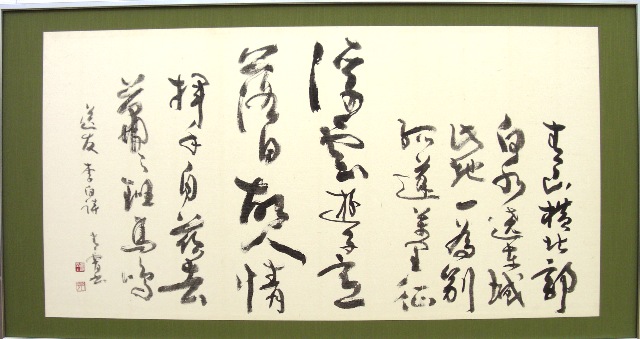 青山横北郭
白水遶東城
此地一為別
孤蓬萬里征
浮雲遊子意
落日故人情
揮手自茲去
蕭々班馬鳴
送友 李白詩